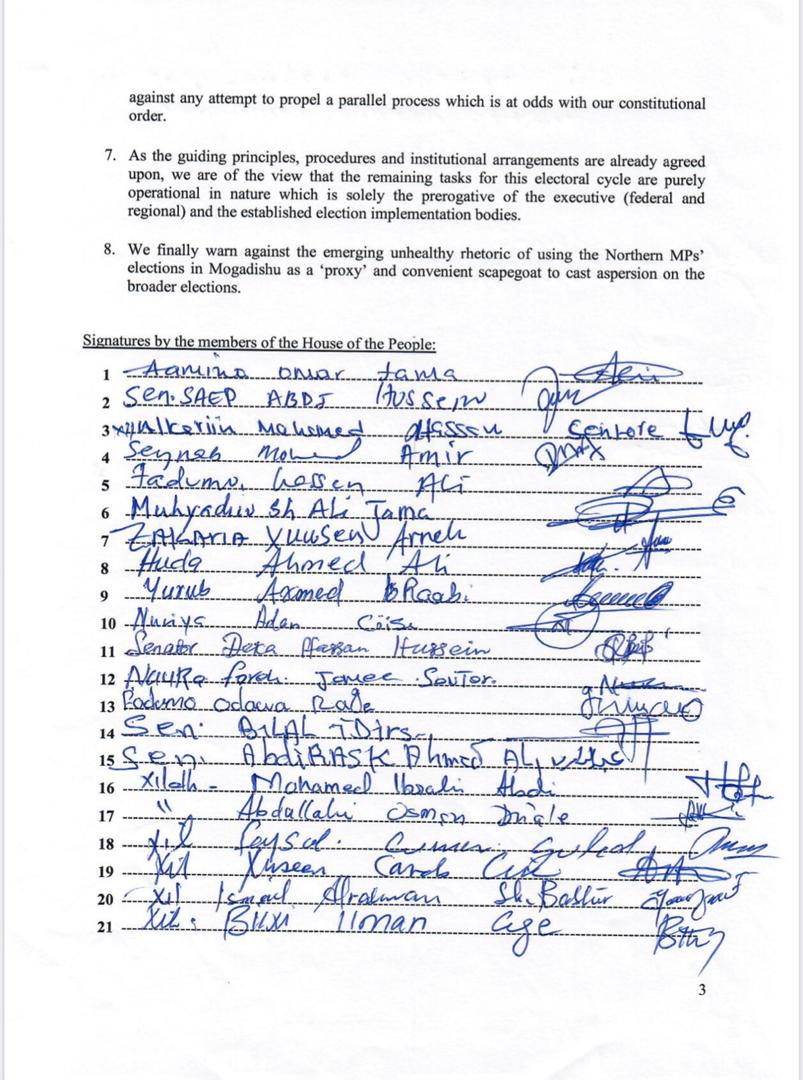 against any attempt to propel a parallel process which is at odds with our constitutional
order.
7. As the guiding principles, procedures and institutional arrangements are already agreed
upon, we are of the view that the remaining tasks for this electoral cycle are purely
operational in nature which is solely the prerogative of the executive (federal and
regional) and the established election implementation bodies.
8. We finally warn against the emerging unhealthy rhetoric of using the Northern MPs'
elections in Mogadishu as a 'proxy' and convenient scapegoat to cast aspersion on the
broader elections.
Signatures by the members of the House of the People:
1 Aamina omar Jama
2 Sen. SAED ABDI Hussein
3 Mohamed
4 Seyneb Amir
5 Fadumo Hassen Ali
6 Muhyadin Sh Ali Jama
7 ZAKARIA Yuusen Arneh
8 Huda Ahmed Ali
9 Yurub Axmed
10 Nuriya Adan
11 Senator Deka Hassan Hussein
12
13 Fadumo odawa Rage
14 Sen. BILAL IDIRS
15 Sen. Ahmed ALi
16 Xildh - Mohamed Ibrahi Abdi
17 " Abdullahi Osman Duale
18 Xil
19 Xil Xuseen
20 Xil Ismail Sh. Bashir
21 Xil. Ilman Cige
3